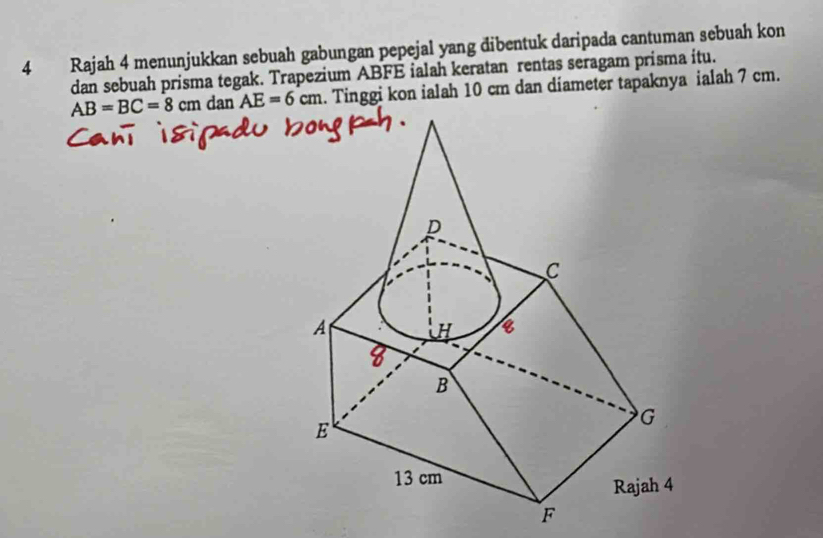 4 Rajah 4 menunjukkan sebuah gabungan pepejal yang dibentuk daripada cantuman sebuah kon
dan sebuah prisma tegak. Trapezium ABFE ialah keratan rentas seragam prisma itu.
AB = BC = 8 cm dan AE = 6 cm. Tinggi kon ialah 10 cm dan diameter tapaknya ialah 7 cm.
Cari isipadu bongkah.
D
C
A
H
8
8
B
G
E
13 cm
Rajah 4
F